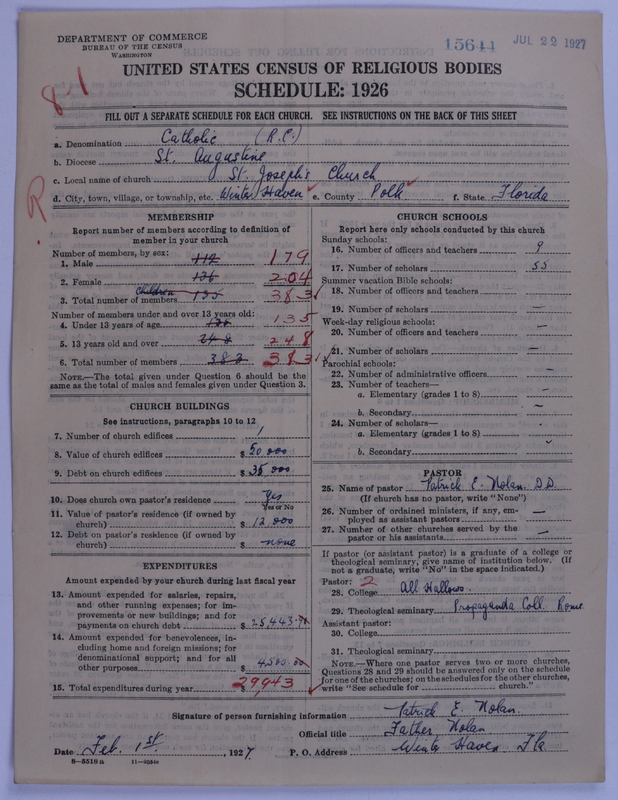 DEPARTMENT OF COMMERCE
BUREAU OF THE CENSUS
WASHINGTON
15644 JUL 22 1927
UNITED STATES CENSUS OF RELIGIOUS BODIES
SCHEDULE: 1926
81
R.
FILL OUT A SEPARATE SCHEDULE FOR EACH CHURCH. SEE INSTRUCTIONS ON THE BACK OF THIS SHEET
a. Denomination Catholic (R.C.)
b. Diocese St. Augustine
c. Local name of church St. Joseph's Church
d. City, town, village, or township, etc. Winter Haven e. County Polk f. State Florida
MEMBERSHIP
Report number of members according to definition of
member in your church
Number of members, by sex:
1. Male 112 179
2. Female 136 204
Children
3. Total number of members 135 383
Number of members under and over 13 years old:
4. Under 13 years of age 135
5. 13 years old and over 248 248
6. Total number of members 383 383
NOTE.—The total given under Question 6 should be the
same as the total of males and females given under Question 3.
CHURCH BUILDINGS
See instructions, paragraphs 10 to 12
7. Number of church edifices 1
8. Value of church edifices $ 50 000
9. Debt on church edifices $ 35 000
10. Does church own pastor's residence Yes
Yes or No
11. Value of pastor's residence (if owned by
church) $ 12 000
12. Debt on pastor's residence (if owned by
church) $ none
EXPENDITURES
Amount expended by your church during last fiscal year
13. Amount expended for salaries, repairs,
and other running expenses; for im-
provements or new buildings; and for
payments on church debt $ 25,443
14. Amount expended for benevolences, in-
cluding home and foreign missions; for
denominational support; and for all
other purposes $ 4,500.00
15. Total expenditures during year $ 29943
CHURCH SCHOOLS
Report here only schools conducted by this church
Sunday schools:
16. Number of officers and teachers 9
17. Number of scholars 55
Summer vacation Bible schools:
18. Number of officers and teachers —
19. Number of scholars —
Week-day religious schools:
20. Number of officers and teachers —
21. Number of scholars —
Parochial schools:
22. Number of administrative officers —
23. Number of teachers—
a. Elementary (grades 1 to 8) —
b. Secondary —
24. Number of scholars—
a. Elementary (grades 1 to 8)
b. Secondary
PASTOR
25. Name of pastor Patrick E. Nolan. D.D.
(If church has no pastor, write "None")
26. Number of ordained ministers, if any, em-
ployed as assistant pastors —
27. Number of other churches served by the
pastor or his assistants —
If pastor (or assistant pastor) is a graduate of a college or
theological seminary, give name of institution below. (If
not a graduate, write "No" in the space indicated.)
Pastor: 2
28. College All Hallows.
29. Theological seminary Propaganda Coll. Rome
Assistant pastor:
30. College
31. Theological seminary
NOTE.—Where one pastor serves two or more churches,
Questions 28 and 29 should be answered only on the schedule
for one of the churches; on the schedules for the other churches,
write "See schedule for church."
Signature of person furnishing information Patrick E. Nolan.
Official title Father Nolan
Date Feb. 1st, 1927. P. O. Address Winter Haven, Fla
8—5510 a